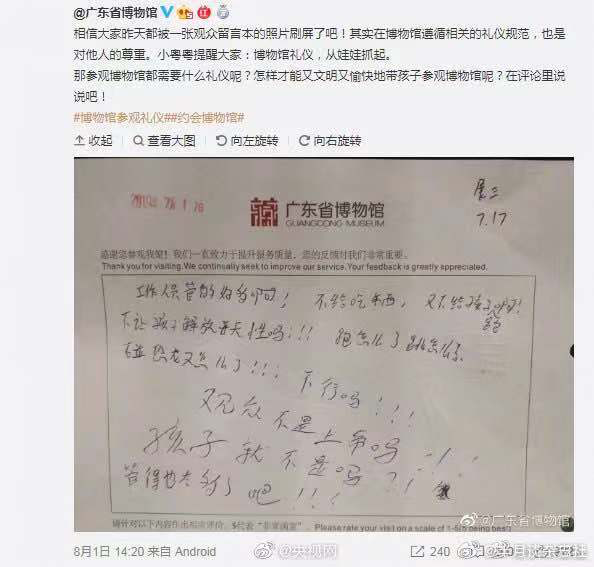 @广东省博物馆
相信大家昨天都被一张观众留言本的照片刷屏了吧！其实在博物馆遵循相关的礼仪规范，也是
对他人的尊重。小粤粤提醒大家：博物馆礼仪，从娃娃抓起。
那参观博物馆都需要什么礼仪呢？怎样才能又文明又愉快地带孩子参观博物馆呢？在评论里说
说吧！
#博物馆参观礼仪##约会博物馆#
收起 查看大图 向左旋转 向右旋转
展三
7.17
广东省博物馆
GUANGDONG MUSEUM
感谢您参观我馆！我们一直致力于提升服务质量，您的反馈对我们非常重要。
Thank you for visiting. We continually seek to improve our service. Your feedback is greatly appreciated.
工作人员管的好多啊！不给吃东西，又不给孩子
不让孩子解放天性吗！！！跑怎么了跳怎么了
碰恐龙又怎么了！！！
不行吗！！！
观众不是上帝吗！！！
孩子就不是吗？！！
管得也太多了吧！！！
请针对以下内容作出相应评价，5代表“非常满意”。 Please rate your visit on a scale of 1-5(5 being best)
@广东省博物馆
8月1日 14:20 来自 Android
@央视网
240
@半月谈杂志社